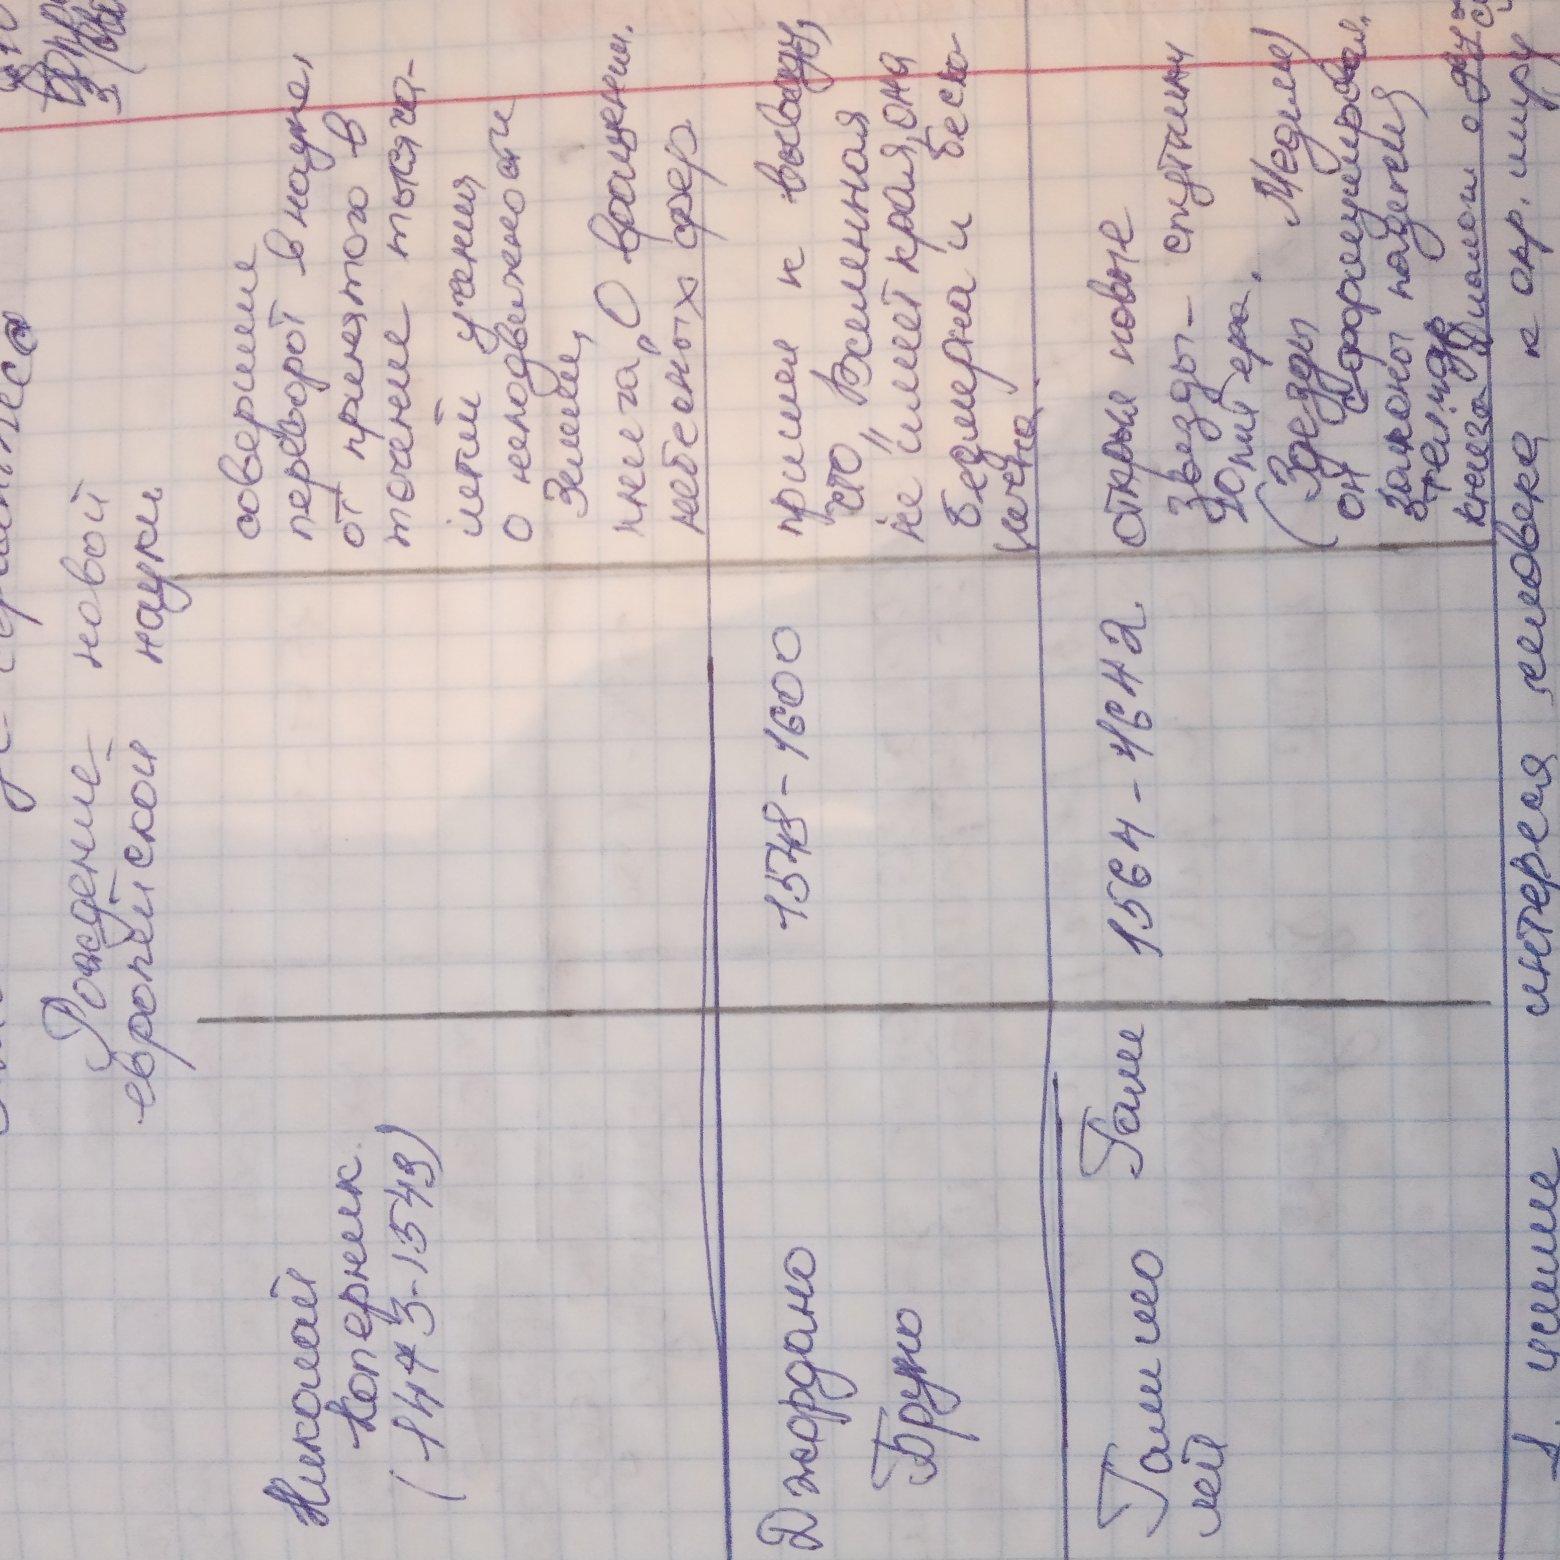 Рождение новой
европейской науки
Николай
Коперник
(1473-1543)
совершил
переворот в науке,
от принятого в
течение тысяча-
летий учения
о неподвижности
Земли,
книга „О вращении
небесных сфер
Джордано
Бруно
1548-1600
пришел к выводу,
что Вселенная
не имеет края, она
безмерна и беско-
нечна
Галилео Гали
лей
1564-1642
открыл новые
звезды- спутники
Юпитера.
(Звезды Медичи)
он сформулировал,
законы падения
тел
книга
1. усиле интереса человека к окр. миру